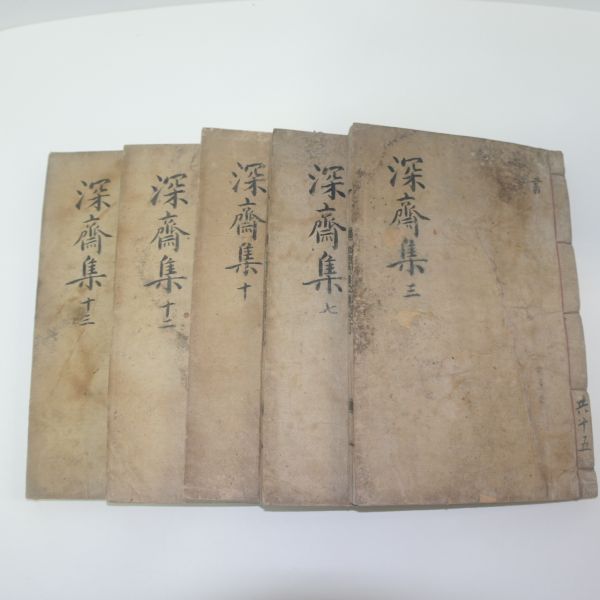 深齋集 三
書
共十五
深齋集 七
深齋集 十
深齋集 十二
深齋集 十三